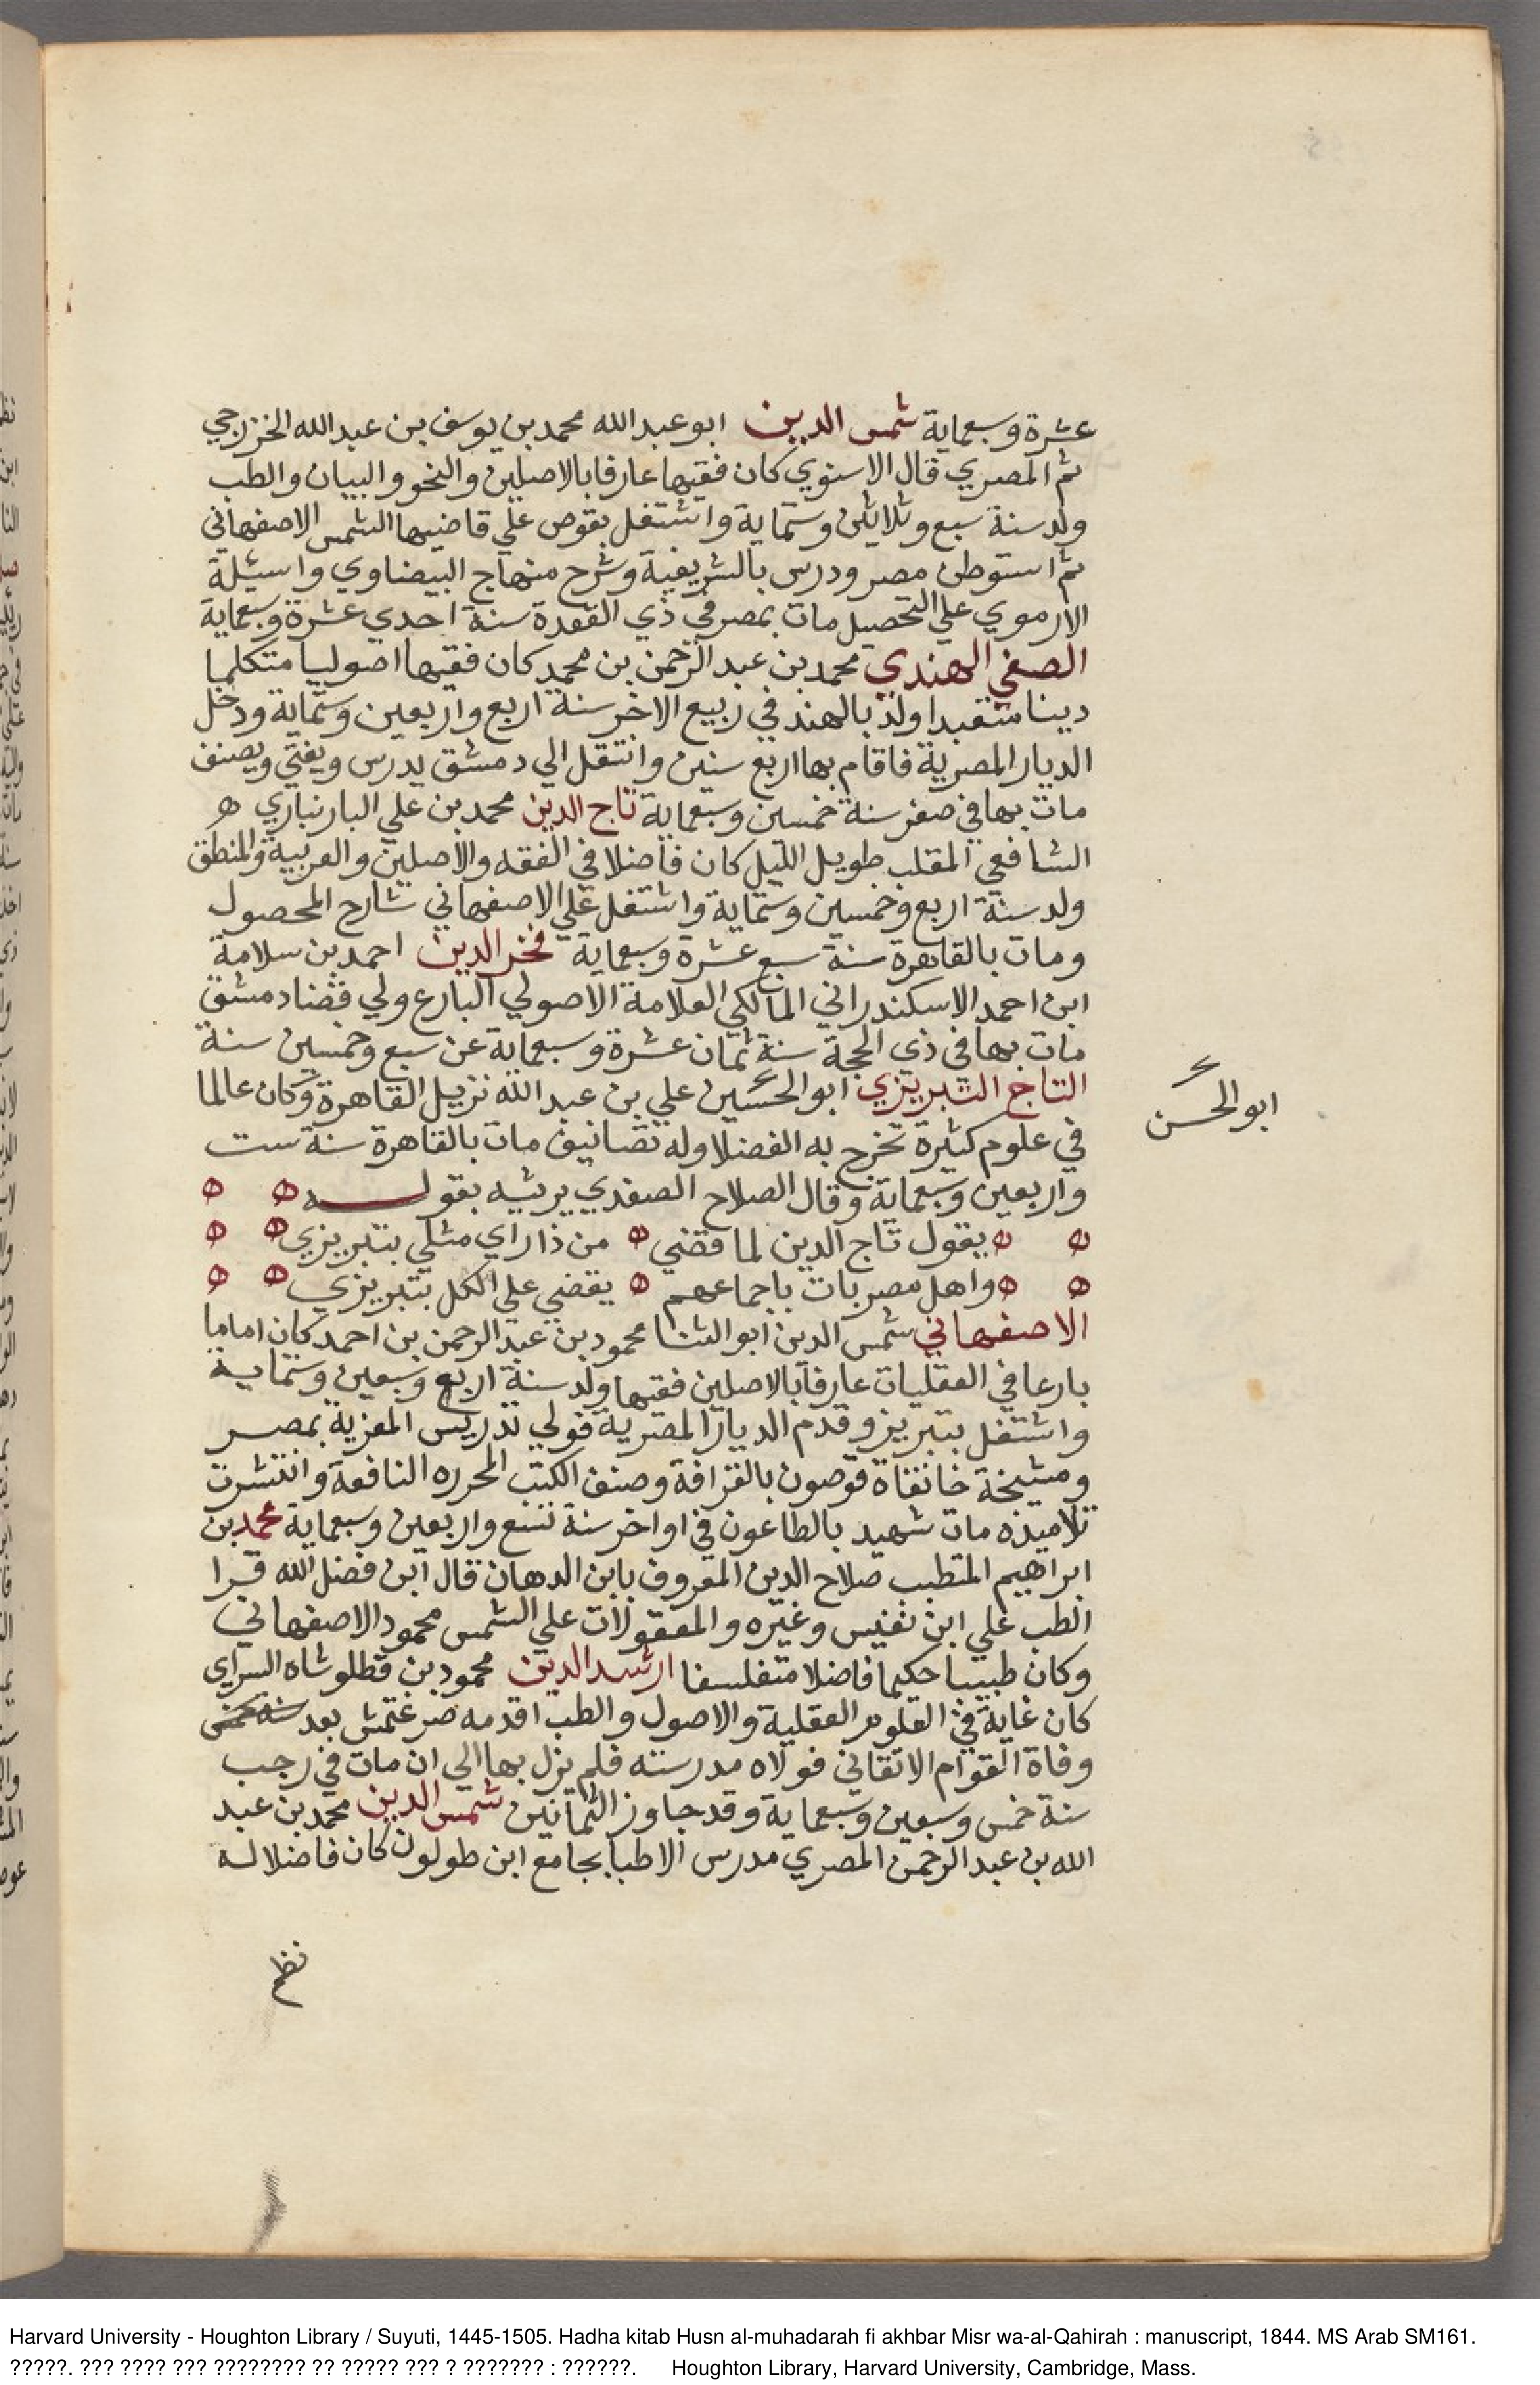 عشرة وسبعماية شمس الدين ابو عبد الله محمد بن يوسف بن عبد الله الخزرجي
ثم المصري قال الاسنوي كان فقيها عارفا بالاصلين والنحو والبيان والطب
ولد سنة سبع وثلاثين وستماية واشتغل بقوص علي قاضيها الشمس الاصفهاني
ثم استوطن مصر ودرس بالشريفية وشرح منهاج البيضاوي واسيلة
الارموي علي التحصيل مات بمصر في ذي القعدة سنة احدي عشرة وسبعماية
الصفي الهندي محمد بن عبد الرحمن بن محمد كان فقيها اصوليا متكلما
دينا متعبدا ولد بالهند في ربيع الاخر سنة اربع واربعين وستماية ودخل
الديار المصرية فاقام بها اربع سنين وانتقل الي دمشق يدرس ويفتي ويصنف
مات بها في صفر سنة خمسين وسبعماية تاج الدين محمد بن علي البارنباري ه
الشافعي المقلب طويل الليل كان فاضلا في الفقه والاصلين والعربية والمنطق
ولد سنة اربع وخمسين وستماية واشتغل علي الاصفهاني شارح المحصول
ومات بالقاهرة سنة سبع عشرة وسبعماية فخر الدين احمد بن سلامة
ابن احمد الاسكندراني المالكي العلامة الاصولي البارع ولي قضا دمشق
مات بها في ذي الحجة سنة ثمان عشرة وسبعماية عن سبع وخمسين سنة
التاج التبريزي ابو الحسين علي بن عبد الله نزيل القاهرة وكان عالما
ابو الحسن
في علوم كثيرة تخرج به الفضلا وله تصانيف مات بالقاهرة سنة ست
واربعين وسبعماية وقال الصلاح الصفدي يرثيه بقوله
يقول تاج الدين لما قضي من ذا راي مثلي بتبريزي
واهل مصر بات باجماعهم يقضي علي الكل بتبريزي
الاصفهاني شمس الدين ابو الثنا محمود بن عبد الرحمن بن احمد كان اماما
بارعا في العقليات عارفا بالاصلين فقيها ولد سنة اربع وسبعين وستماية
واشتغل بتبريز وقدم الديار المصرية فولي تدريس المعزية بمصر
ومشيخة خانقاة قوصون بالقرافة وصنف الكتب المحرره النافعة وانتشرت
تلاميذه مات شهيد بالطاعون في اواخر سنة تسع واربعين وسبعماية محمد بن
ابراهيم المتطبب صلاح الدين المعروف بابن الدهان قال ابن فضل الله قرا
الطب علي ابن نفيس وغيره والمعقولات علي الشمس محمود الاصفهاني
وكان طبيبا حكيما فاضلا متفلسفا ارشد الدين محمود بن قطلوشاه السراي
كان غاية في العلوم العقلية والاصول والطب اقدمه صرغتمش بعد
وفاة القوام الاتقاني فولاه مدرسته فلم يزل بها الي ان مات في رجب
سنة خمس وسبعين وسبعماية وقد جاوز الثمانين شمس الدين محمد بن عبد
الله بن عبد الرحمن المصري مدرس الاطبا بجامع ابن طولون كان فاضلا له
نظم
Harvard University - Houghton Library / Suyuti, 1445-1505. Hadha kitab Husn al-muhadarah fi akhbar Misr wa-al-Qahirah : manuscript, 1844. MS Arab SM161.
?????. ??? ???? ??? ???????? ?? ????? ??? ? ??????? : ??????. Houghton Library, Harvard University, Cambridge, Mass.